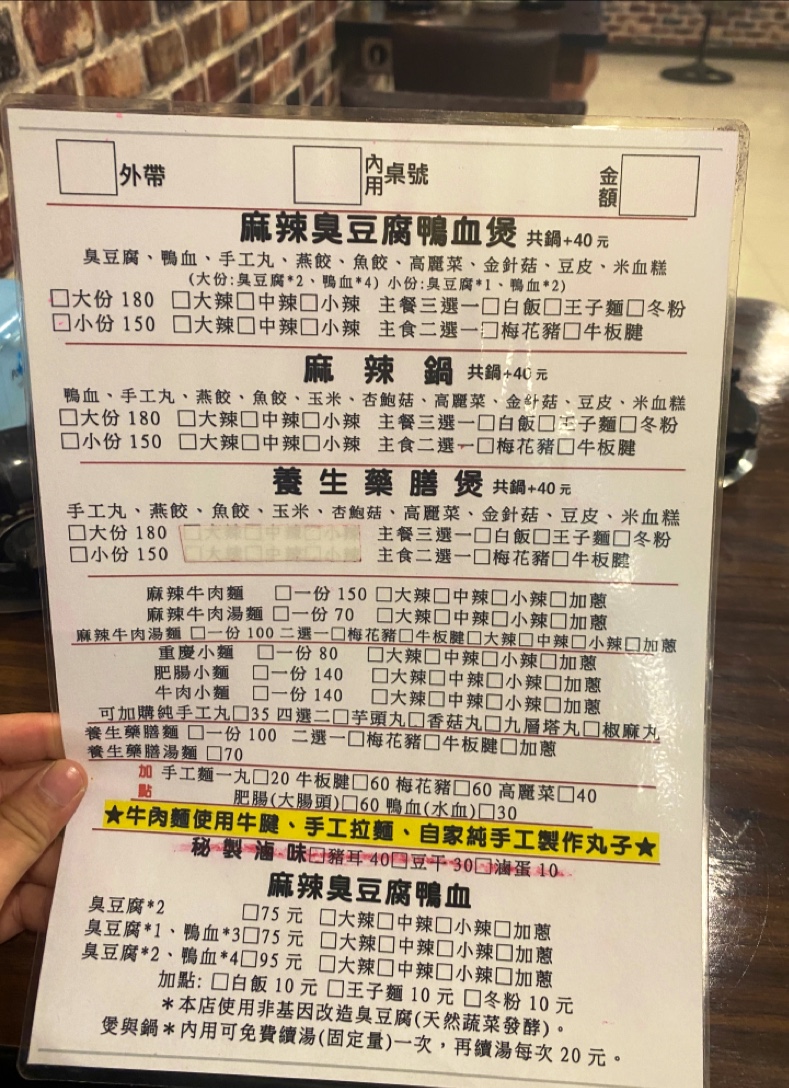 □外帶 □內用桌號 金額□
麻辣臭豆腐鴨血煲 共鍋+40元
臭豆腐、鴨血、手工丸、燕餃、魚餃、高麗菜、金針菇、豆皮、米血糕
(大份:臭豆腐*2、鴨血*4) 小份:臭豆腐*1、鴨血*2)
□大份 180 □大辣□中辣□小辣 主餐三選一□白飯□王子麵□冬粉
□小份 150 □大辣□中辣□小辣 主食二選一□梅花豬□牛板腱
麻辣鍋 共鍋+40元
鴨血、手工丸、燕餃、魚餃、玉米、杏鮑菇、高麗菜、金針菇、豆皮、米血糕
□大份 180 □大辣□中辣□小辣 主餐三選一□白飯□王子麵□冬粉
□小份 150 □大辣□中辣□小辣 主食二選一□梅花豬□牛板腱
養生藥膳煲 共鍋+40元
手工丸、燕餃、魚餃、玉米、杏鮑菇、高麗菜、金針菇、豆皮、米血糕
□大份 180 □大辣□中辣□小辣 主餐三選一□白飯□王子麵□冬粉
□小份 150 □大辣□中辣□小辣 主食二選一□梅花豬□牛板腱
麻辣牛肉麵 □一份 150 □大辣□中辣□小辣□加蔥
麻辣牛肉湯麵 □一份 70 □大辣□中辣□小辣□加蔥
麻辣牛肉湯麵 □一份 100 二選一□梅花豬□牛板腱□大辣□中辣□小辣□加蔥
重慶小麵 □一份 80 □大辣□中辣□小辣□加蔥
肥腸小麵 □一份 140 □大辣□中辣□小辣□加蔥
牛肉小麵 □一份 140 □大辣□中辣□小辣□加蔥
可加購純手工丸□35 四選二□芋頭丸□香菇丸□九層塔丸□椒麻丸
養生藥膳麵 □一份 100 二選一□梅花豬□牛板腱□加蔥
養生藥膳湯麵 □70
加點 手工麵一丸□20 牛板腱□60 梅花豬□60 高麗菜□40
肥腸(大腸頭)□60 鴨血(水血)□30
★牛肉麵使用牛腱、手工拉麵、自家純手工製作丸子★
秘製滷味□豬耳 40□豆干 30□滷蛋 10
麻辣臭豆腐鴨血
臭豆腐*2 □75 元 □大辣□中辣□小辣□加蔥
臭豆腐*1、鴨血*3□75 元 □大辣□中辣□小辣□加蔥
臭豆腐*2、鴨血*4□95 元 □大辣□中辣□小辣□加蔥
加點: □白飯 10 元 □王子麵 10 元 □冬粉 10 元
＊本店使用非基因改造臭豆腐(天然蔬菜發酵)。
煲與鍋＊內用可免費續湯(固定量)一次，再續湯每次 20 元。